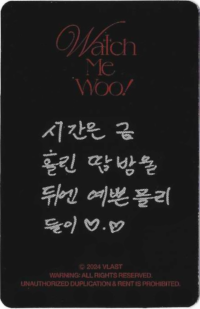 Watch
Me
Woo!
시간은 금
홀린 맘 밤을
뒤엔 예쁜 플리
들이 ♡.♡
© 2024 VLAST
WARNING: ALL RIGHTS RESERVED.
UNAUTHORIZED DUPLICATION & RENT IS PROHIBITED.